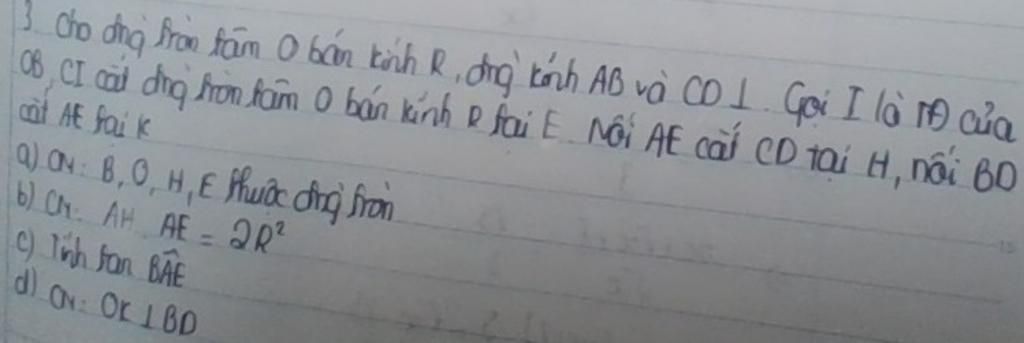 3. Cho đng̀ tròn tâm O bán kính R, đng̀ kính AB và CD ⊥. Gọi I là TĐ của
OB, CI cắt đng̀ tròn tâm O bán kính R tại E. Nối AE cắt CD tại H, nối BD
cắt AE tại K
a) CM: B, O, H, E thuộc đng̀ tròn
b) CM: AH AE = 2R²
c) Tính tan BÂE
d) CM: OK ⊥ BD